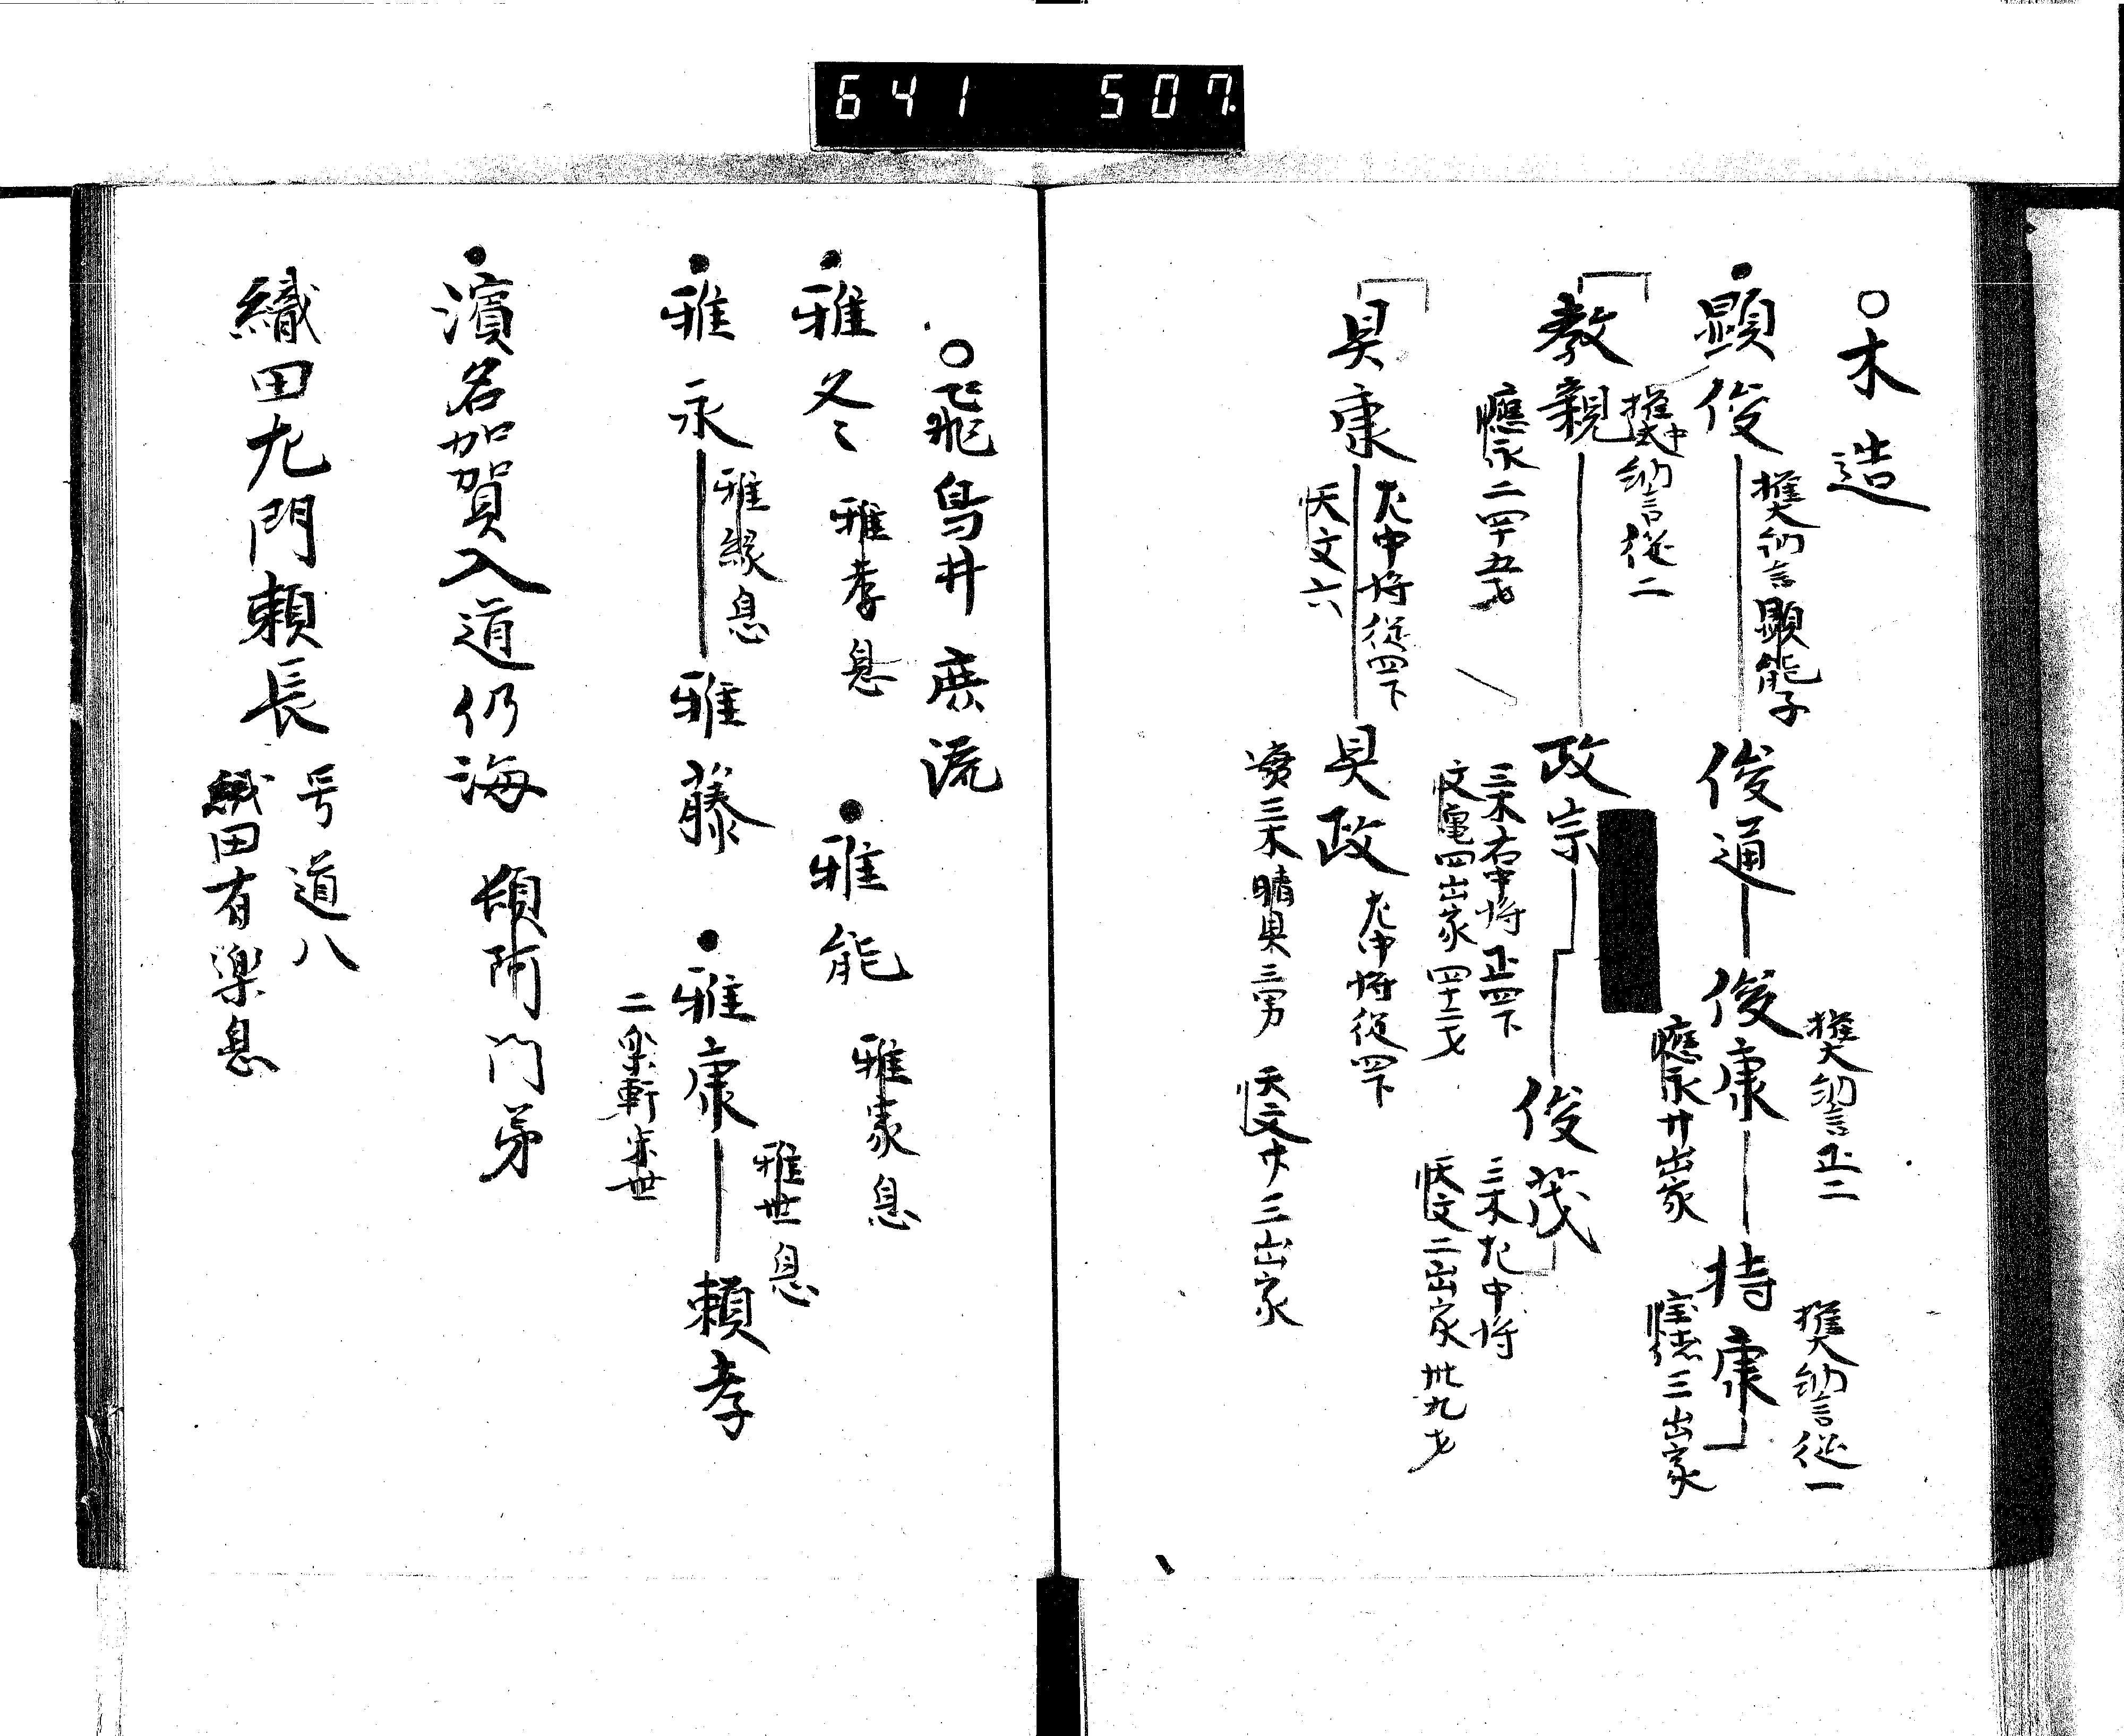 641 507
○木造
顕俊
権大納言顕能子
俊通
俊康
権大納言正二
應永廿出家
持康
権大納言従一
宝徳三出家
教親
権中納言従二
應永二四十五才
政宗
三木右中将正四下
文亀四出家四十二才
俊茂
三木左中将
天文二出家卅九才
具康
左中将従四下
天文六
具政
左中将従四下
實三木晴具三男 天文廿三出家
○飛鳥井庶流
雅冬 雅孝息
雅能 雅家息
雅永
雅縁息
雅藤
雅康
雅世息
二楽軒宋世
頼孝
濱名加賀入道仍海 頓阿門弟
織田左門頼長
号道八
織田有楽息